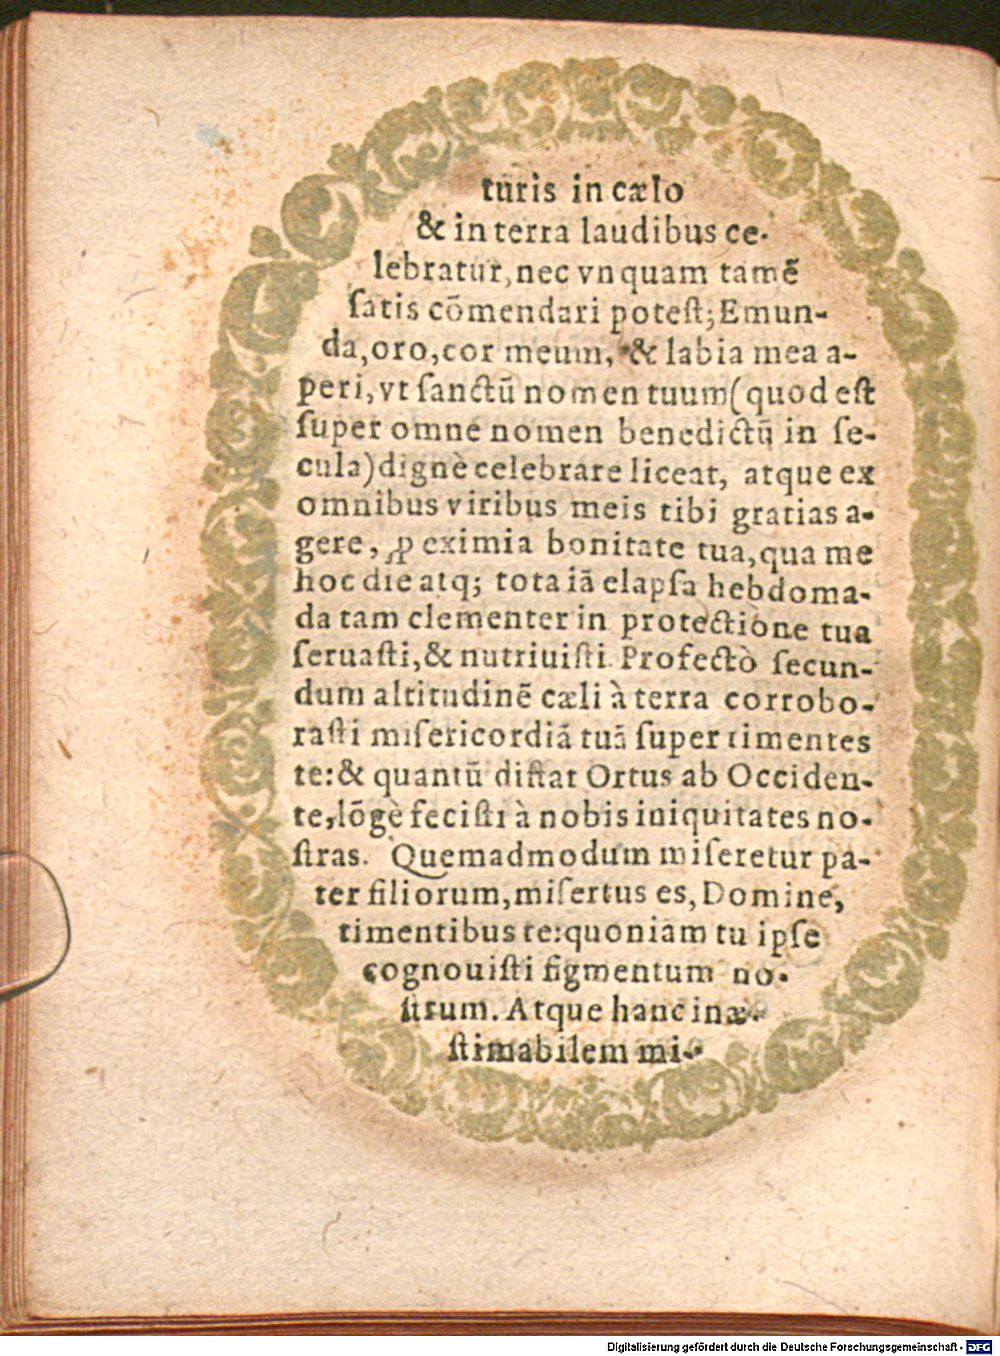 turis in cælo
& in terra laudibus ce-
lebratur, nec vnquam tamē
ſatis cōmendari poteſt; Emun-
da, oro, cor meum, & labia mea a-
peri, vt ſanctū nomen tuum (quod eſt
ſuper omne nomen benedictū in ſe-
cula) dignè celebrare liceat, atque ex
omnibus viribus meis tibi gratias a-
gere, ꝓ eximia bonitate tua, qua me
hoc die atq; tota iā elapſa hebdoma-
da tam clementer in protectione tua
ſeruaſti, & nutriuiſti. Profectò ſecun-
dum altitudinē cæli à terra corrobo-
raſti miſericordiā tuā ſuper timentes
te: & quantū diſtat Ortus ab Occiden-
te, lōgè feciſti à nobis iniquitates no-
ſtras. Quemadmodum miſeretur pa-
ter filiorum, miſertus es, Domine,
timentibus te: quoniam tu ipſe
cognouiſti figmentum no-
ſtrum. Atque hanc inæ-
ſtimabilem mi-
Digitalisierung gefördert durch die Deutsche Forschungsgemeinschaft - DFG